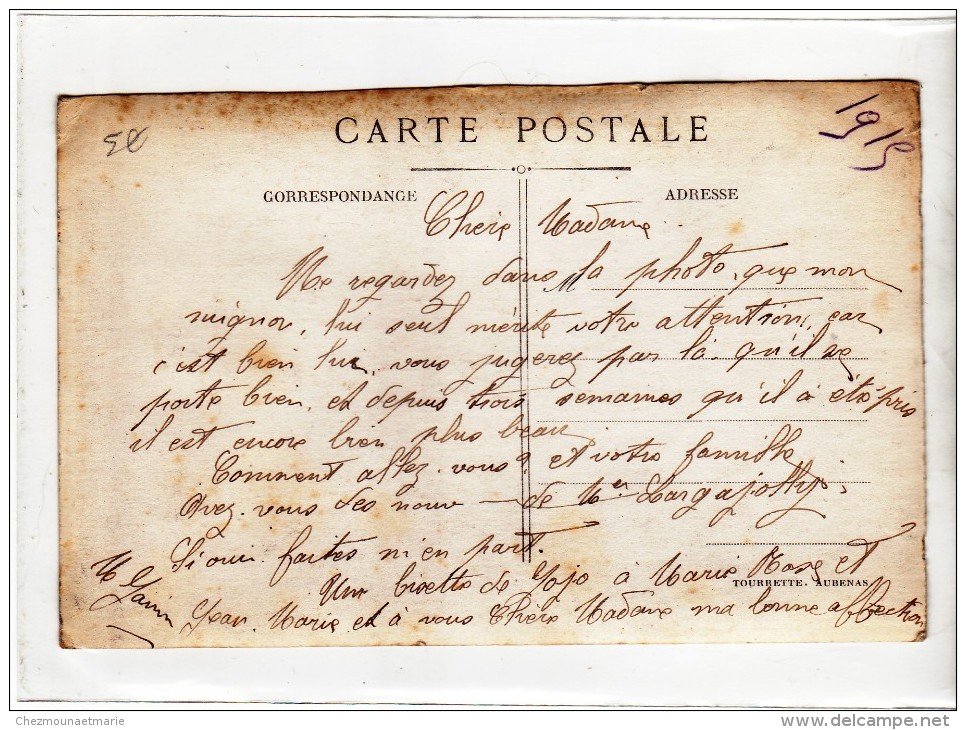 58
1915
CARTE POSTALE
CORRESPONDANCE
ADRESSE
Chère Madame
Ne regardez dans la photo, que mon
mignon, lui seul mérite votre attention, car
c'est bien lui, vous jugerez par là qu'il se
porte bien, et depuis trois semaines qu'il a été pris
il est encore bien plus beau
Comment allez-vous? et votre famille
Avez-vous des nouv — de Mr
Si oui faites m'en part.
Une bisette de Jojo à Marie Rose et
TOURRETTE. AUBENAS
Jean Marie et à vous Chère Madame ma bonne affection
M
Chezmounaetmarie
www.delcampe.net